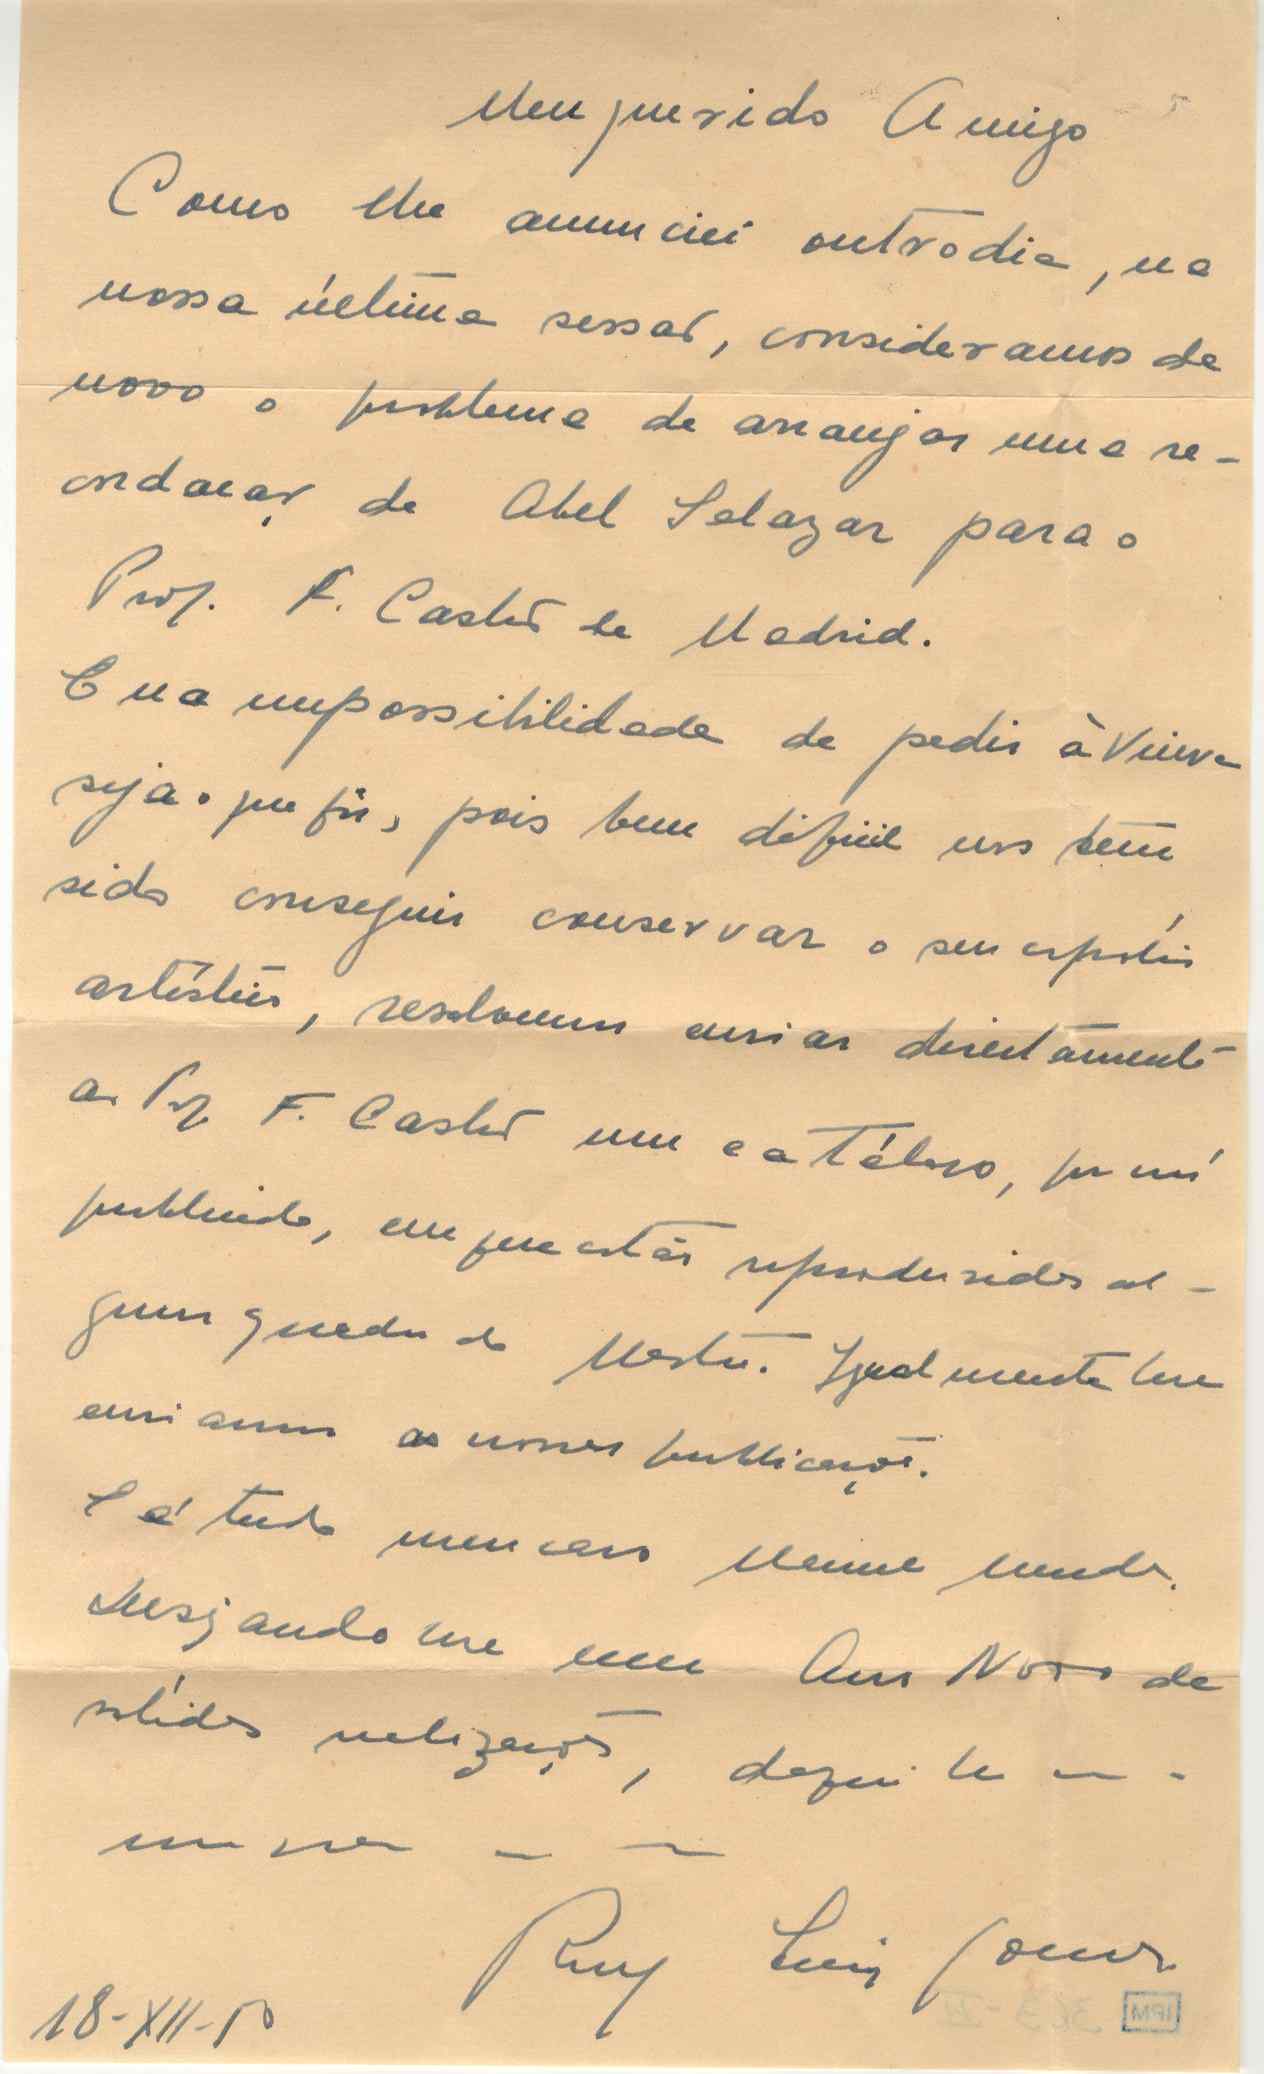 Meu querido Amigo
Como lhe anunciei outro dia, na
nossa última sessão, consideramos de
novo o problema de arranjar uma re-
cordação de Abel Salazar para o
Prof. F. Castro de Madrid.
E na impossibilidade de pedir à Viúva
seja o que fôr, pois bem difícil nos tem
sido conseguir conservar o seu espólio
artístico, resolvemos enviar directamente
ao Prof. F. Castro um catálogo, por nós
publicado, em que estão reproduzidos al-
guns quadros do Mestre. Igualmente lhe
enviamos as nossas publicações.
E é tudo meu caro
Desejando-lhe um Ano Novo de
sólidas realizações, daqui lhe
Ruy Luís Gomes
18-XII-50
IPM 363-